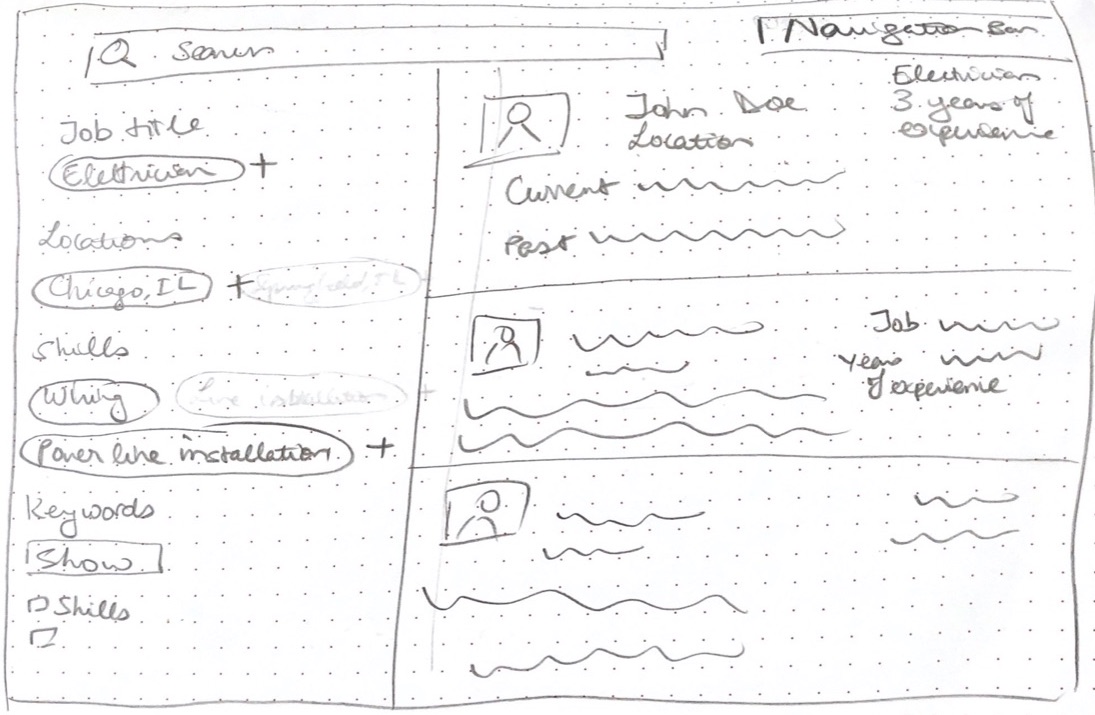 Search
Navigation Bar
Job title
Electrician +
Locations
Chicago, IL + Springfield, IL +
Skills
Wiring Line installation +
Power line installation +
Keywords
Show
Skills
John Doe
Location
Electrician
3 years of
experience
Current
Past
Job
Years
of experience